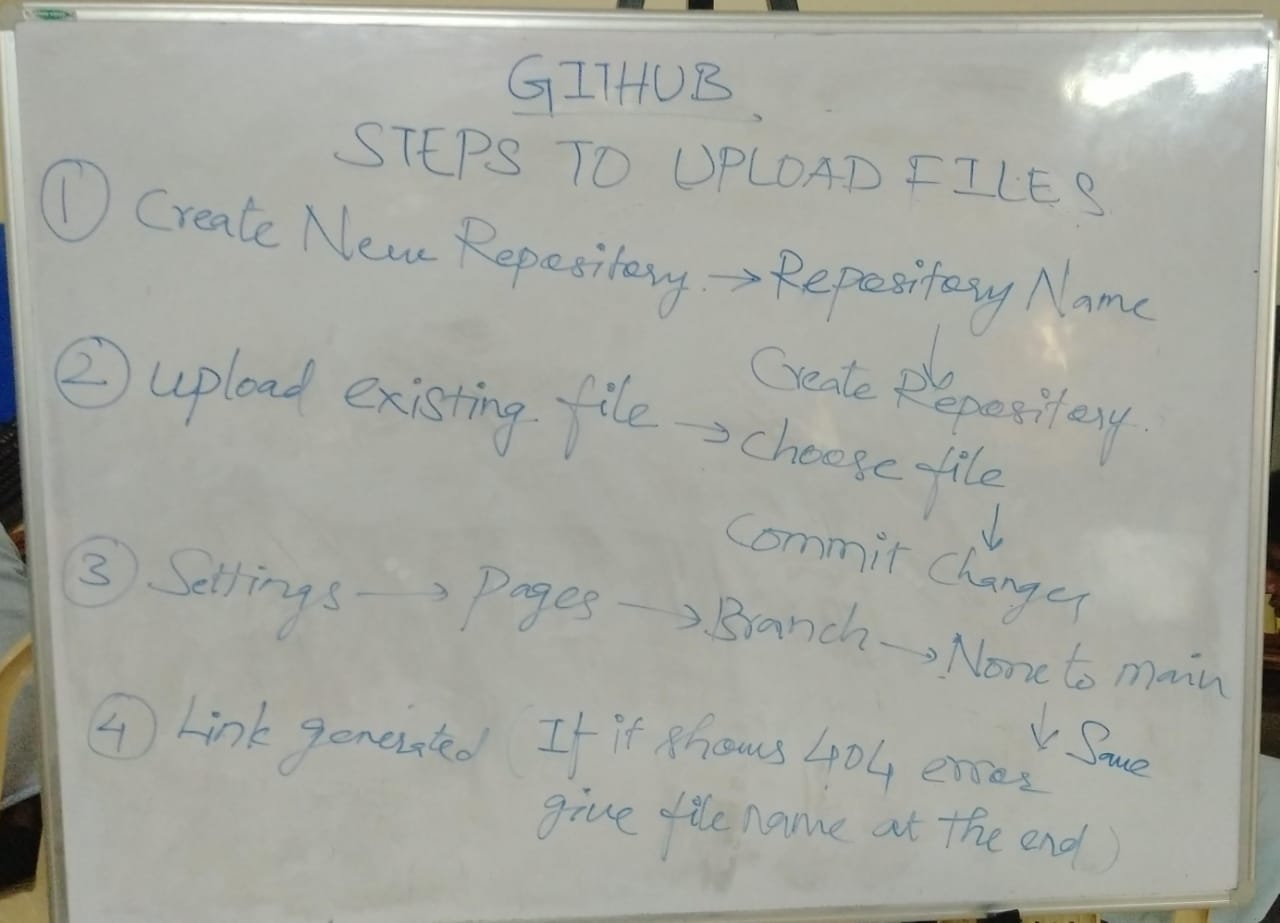 GITHUB
STEPS TO UPLOAD FILES
① Create New Repository. → Repository Name
↓
Create Repository.
② Upload existing file → choose file
↓
Commit Changes
③ Settings → Pages → Branch → None to main
↓ Save
④ Link generated (If it shows 404 error
give file name at the end)